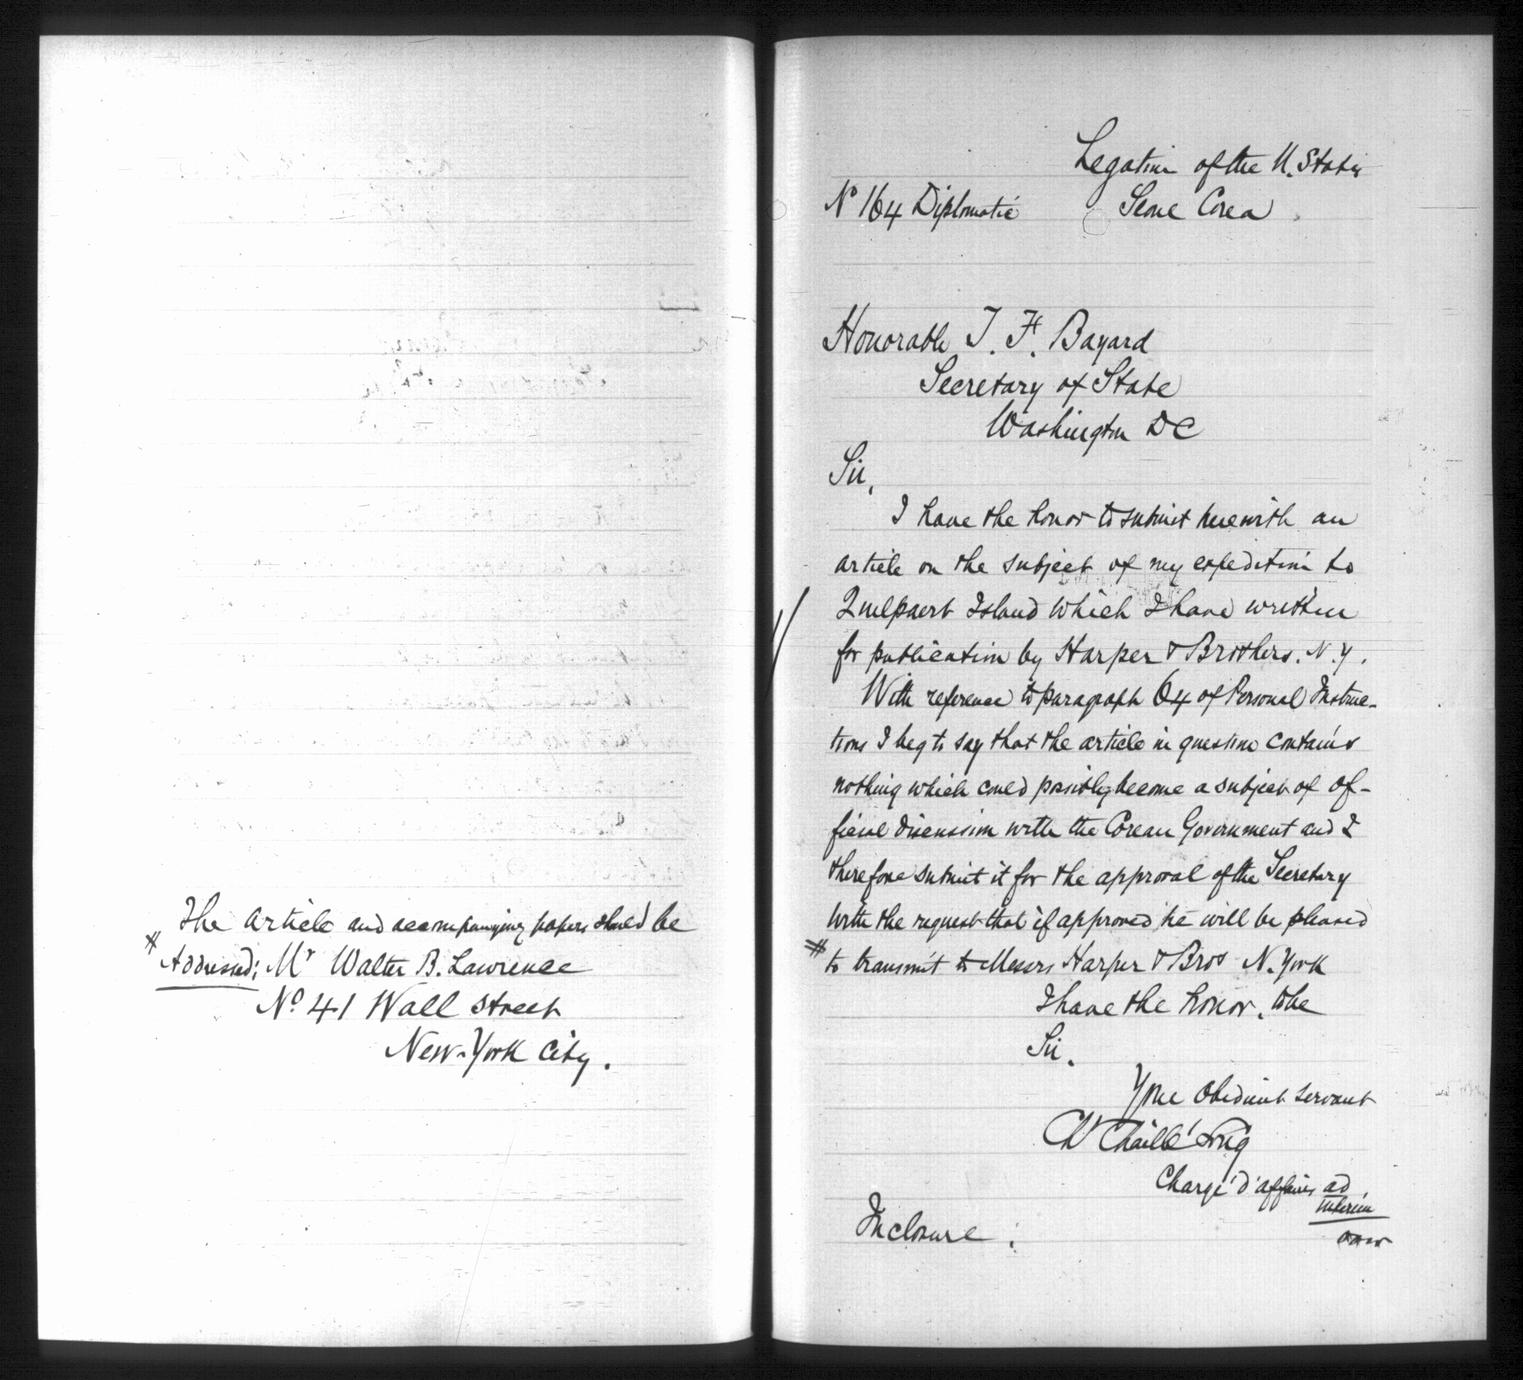 The article and accompanying papers should be
# Addressed; Mr Walter B. Lawrence
No 41 Wall Street
New-York City.
Legation of the U. States
No 164 Diplomatic Seoul Corea
Honorable T. F. Bayard
Secretary of State
Washington DC
Sir,
I have the honor to submit herewith an
article on the subject of my expedition to
Quelpaert Island which I have written
for publication by Harper & Brothers. N.Y.
With reference to paragraph 64 of Personal Instruc-
tions I beg to say that the article in question contains
nothing which could possibly become a subject of of-
ficial discussion with the Corean Government and I
therefore submit it for the approval of the Secretary
with the request that if approved he will be pleased
# to transmit to Messrs Harper & Bros N. York
I have the honor, to be
Sir.
Your Obedient servant
Ch Chaillé Long
Chargé d'affaires ad
interim
over
Inclosure :